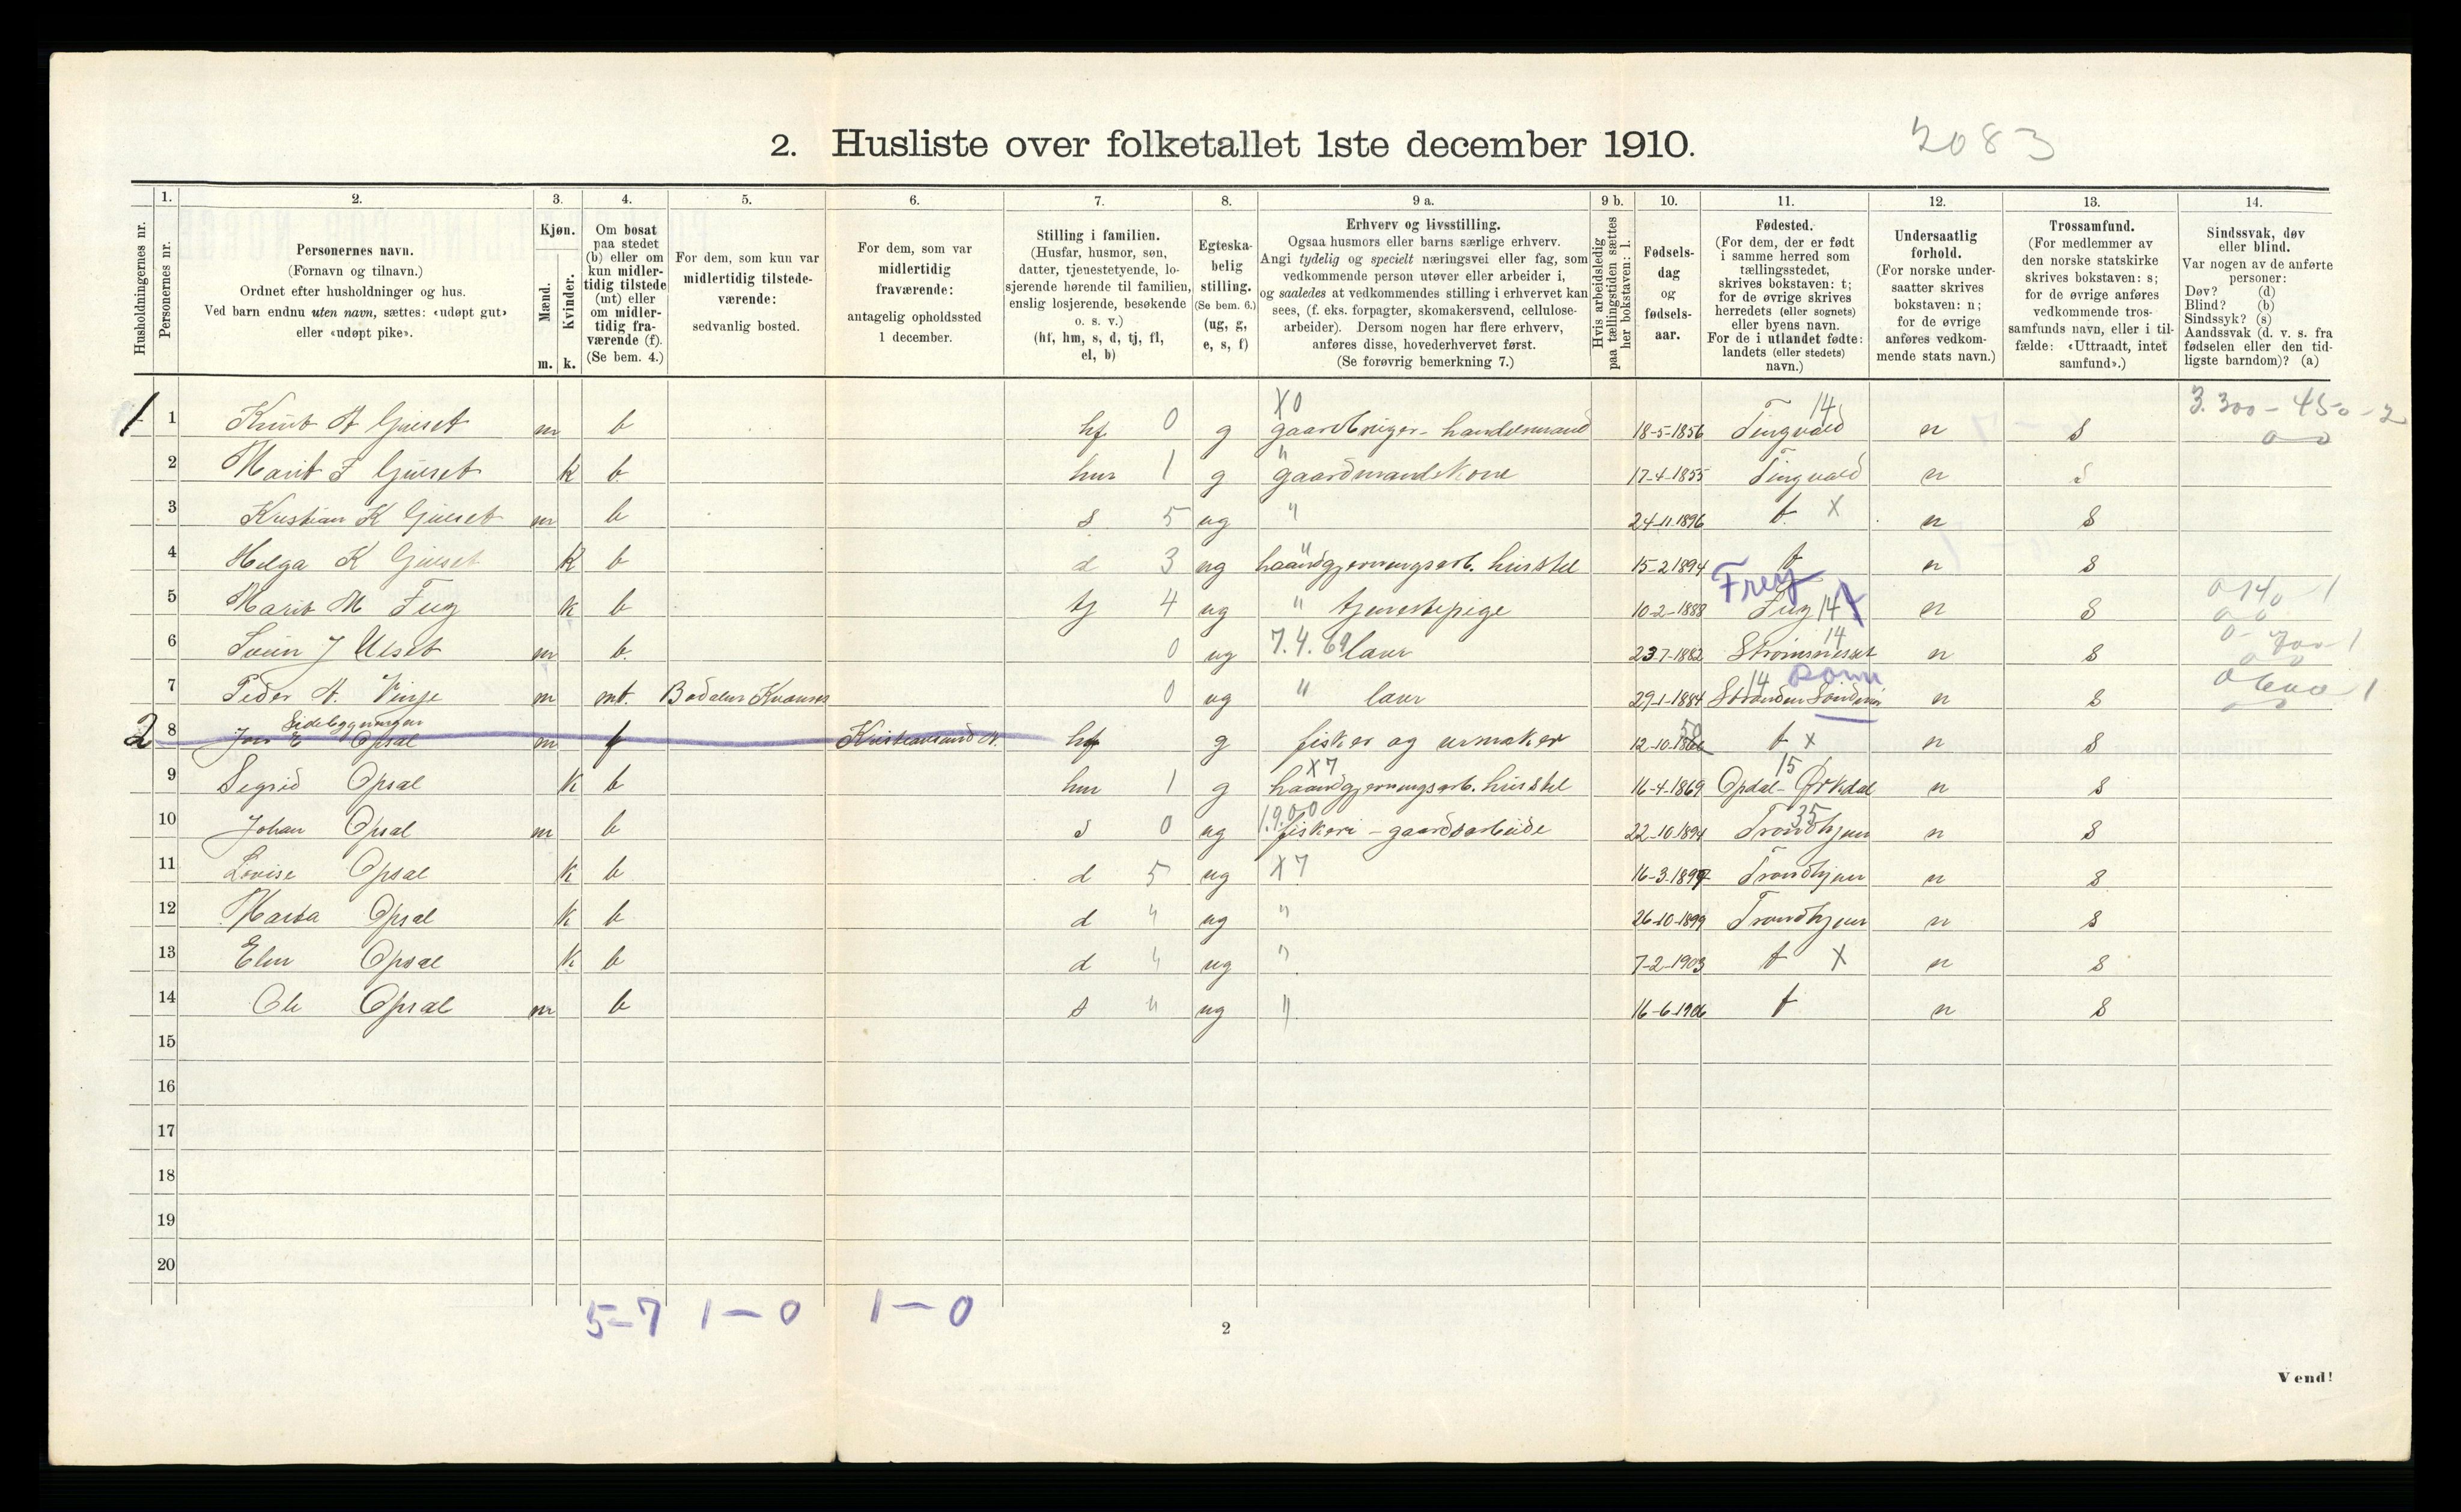 2. Husliste over folketallet 1ste december 1910.
2083
Husholdningernes nr.
1. Personernes nr.
2. Personernes navn. (Fornavn og tilnavn.) Ordnet efter husholdninger og hus. Ved barn endnu uten navn, sættes: «udøpt gut» eller «udøpt pike».
3. Kjøn. Mænd. m. Kvinder. k.
4. Om bosat paa stedet (b) eller om kun midlertidig tilstede (mt) eller om midlertidig fraværende (f). (Se bem. 4.)
5. For dem, som kun var midlertidig tilstedeværende: sedvanlig bosted.
6. For dem, som var midlertidig fraværende: antagelig opholdssted 1 december.
7. Stilling i familien. (Husfar, husmor, søn, datter, tjenestetyende, losjerende hørende til familien, enslig losjerende, besøkende o. s. v.) (hf, hm, s, d, tj, fl, el, b)
8. Egteskabelig stilling. (Se bem. 6.) (ug, g, e, s, f)
9 a. Erhverv og livsstilling. Ogsaa husmors eller barns særlige erhverv. Angi tydelig og specielt næringsvei eller fag, som vedkommende person utøver eller arbeider i, og saaledes at vedkommendes stilling i erhvervet kan sees, (f. eks. forpagter, skomakersvend, cellulosearbeider). Dersom nogen har flere erhverv, anføres disse, hovederhvervet først. (Se forøvrig bemerkning 7.)
9 b. Hvis arbeidsledig paa tællingstiden sættes her bokstaven: l.
10. Fødselsdag og fødselsaar.
11. Fødested. (For dem, der er født i samme herred som tællingsstedet, skrives bokstaven: t; for de øvrige skrives herredets (eller sognets) eller byens navn. For de i utlandet fødte: landets (eller stedets) navn.)
12. Undersaatlig forhold. (For norske undersaatter skrives bokstaven: n; for de øvrige anføres vedkommende stats navn.)
13. Trossamfund. (For medlemmer av den norske statskirke skrives bokstaven: s; for de øvrige anføres vedkommende trossamfunds navn, eller i tilfælde: «Uttraadt, intet samfund».)
14. Sindssvak, døv eller blind. Var nogen av de anførte personer: Døv? (d) Blind? (b) Sindssyk? (s) Aandssvak (d. v. s. fra fødselen eller den tidligste barndom)? (a)
X0 14 3.300 - 450 - 2
1 1 Knut A Gulset m b hf 0 g gaardbruger - handelsmand 18-5-1856 Tingvold n s
2 Marit F Gulset k b hm 1 g " gaardmandskone 17-4-1855 Tingvold n s
3 Kristian K Gulset m b s 5 ug " 24-11-1896 t X n s
4 Helga K Gulset k b d 3 ug " haandgjerningsarb. husstel 15-2-1894 t n s
Frey
5 Marit M k b tj 4 ug " tjenestepige 10-2-1888 14 n s
6 J Ulset m b 0 ug 7.4.69 23-7-1882 Strømsneset 14 n s
7 Peder A. Vinje m mt. 0 ug " 29-1-1884 14 n s
Sidebygningen
2 8 Jon E Opsal m f Kristiansund N. hf g fisker og urmaker 12-10-18 t X n s
9 Sigrid Opsal k b hm 1 g X7 haandgjerningsarb. husstel 16-4-1869 Opdal - Ørkdal 15 n s
10 Johan Opsal m b s 0 ug 1.9.00 fiskeri - gaardsarbeide 22-10-1894 Trondhjem 35 n s
11 Lovise Opsal k b d 5 ug X7 16-3-1897 Trondhjem n s
12 Marta Opsal k b d " ug " 26-10-1899 Trondhjem n s
13 Elen Opsal k b d " ug " 7-2-1903 t X n s
14 Ole Opsal m b s " ug " 16-6-1906 t n s
15
16
17
18
19
20
5-7 1-0 1-0
2
Vend!